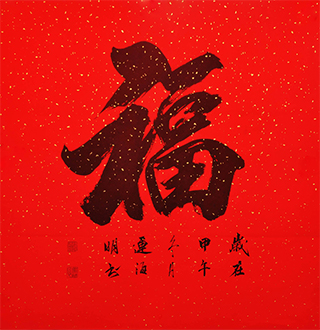 福
歲在
甲午
冬月
連海
明书